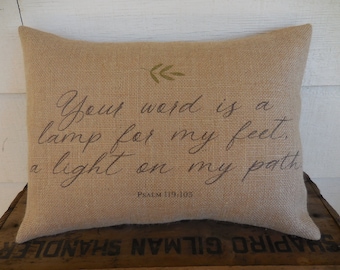 Your word is a
lamp for my feet,
a light on my path
PSALM 119:105
SHAPIRO GILMAN SHANDLER